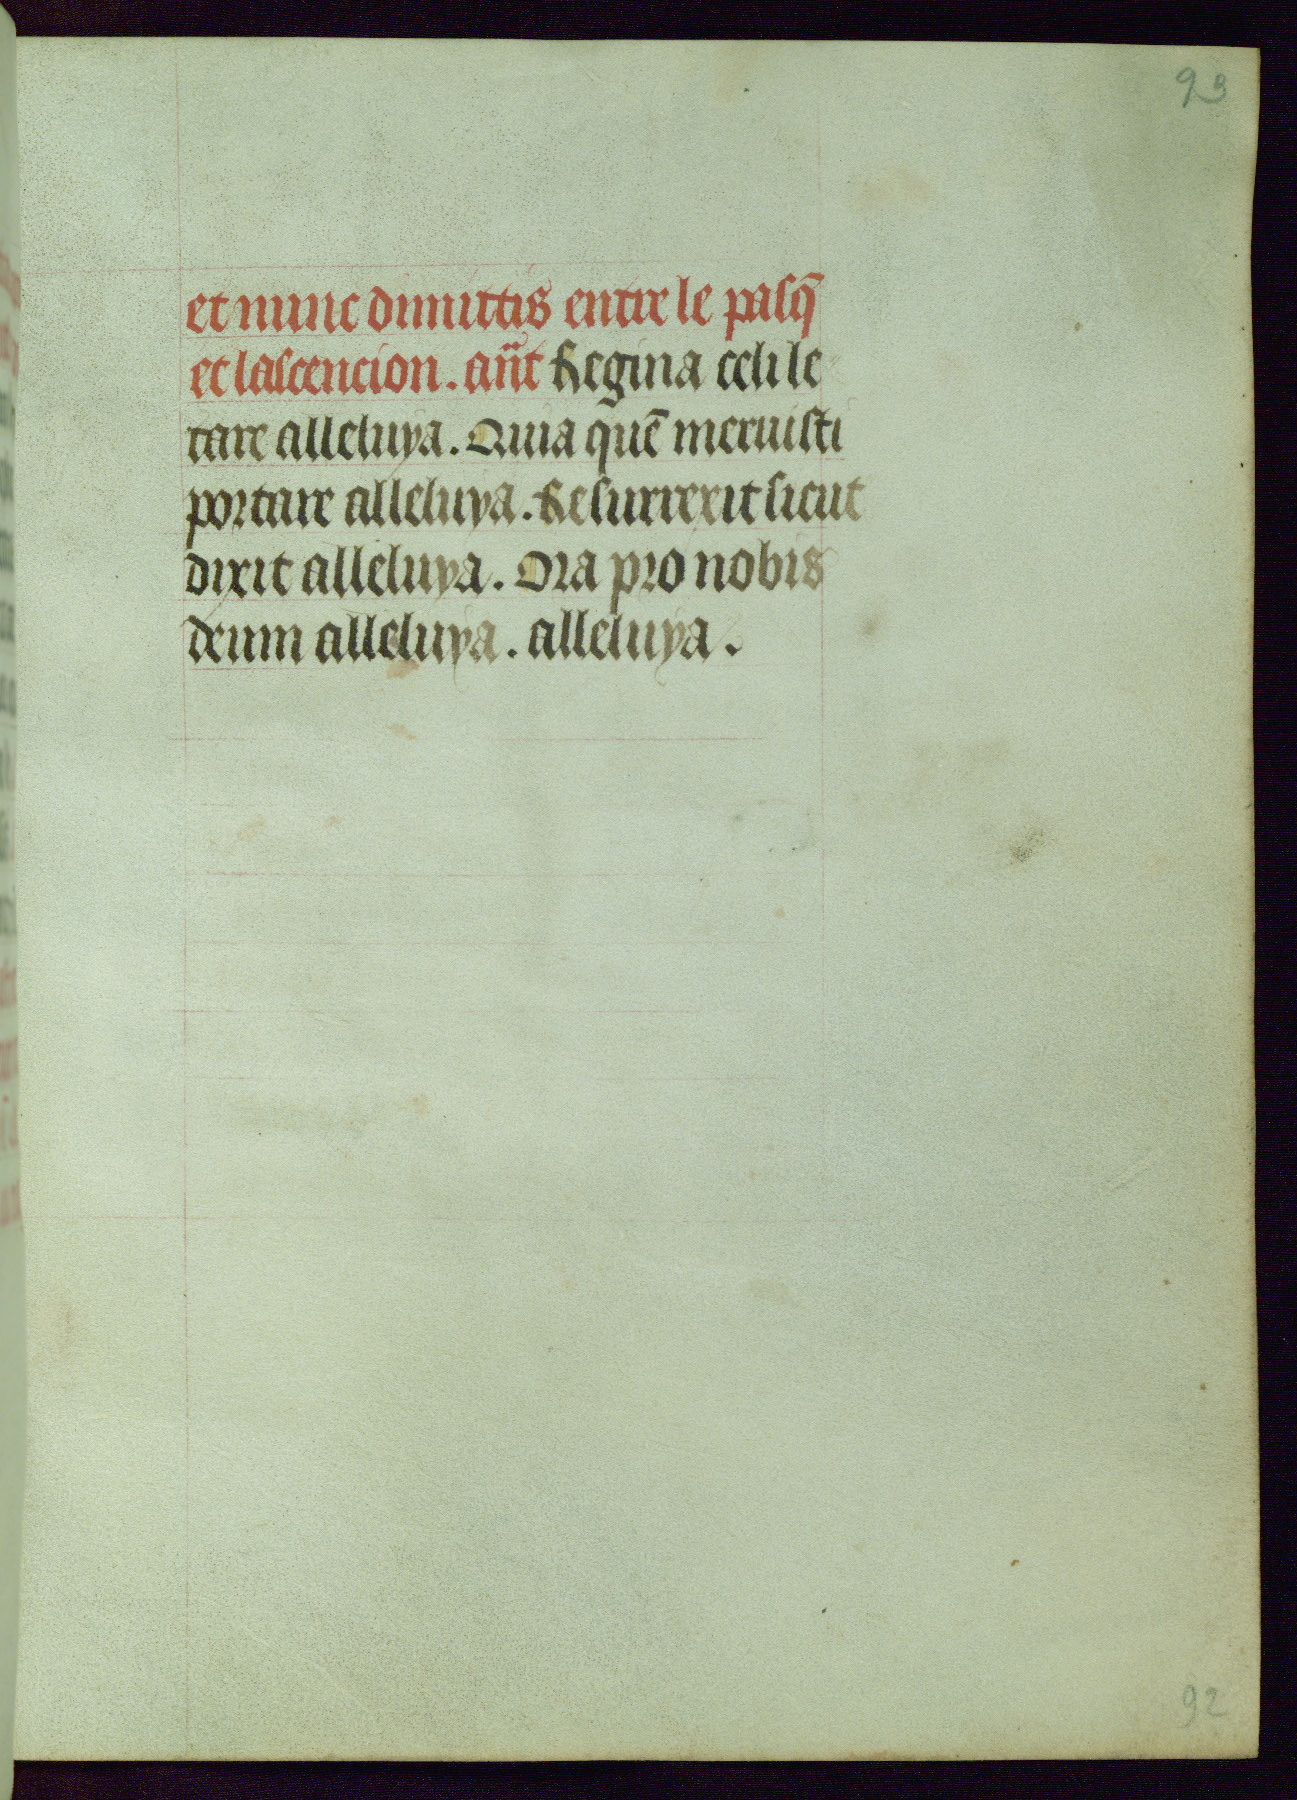 93
et nunc dimittis entre le pasq̄
et lascencion. an̄t Regina celi le
tare alleluya. Quia quē meruisti
portare alleluya. Resurrexit sicut
dixit alleluya. Ora pro nobis
deum alleluya. alleluya.
92